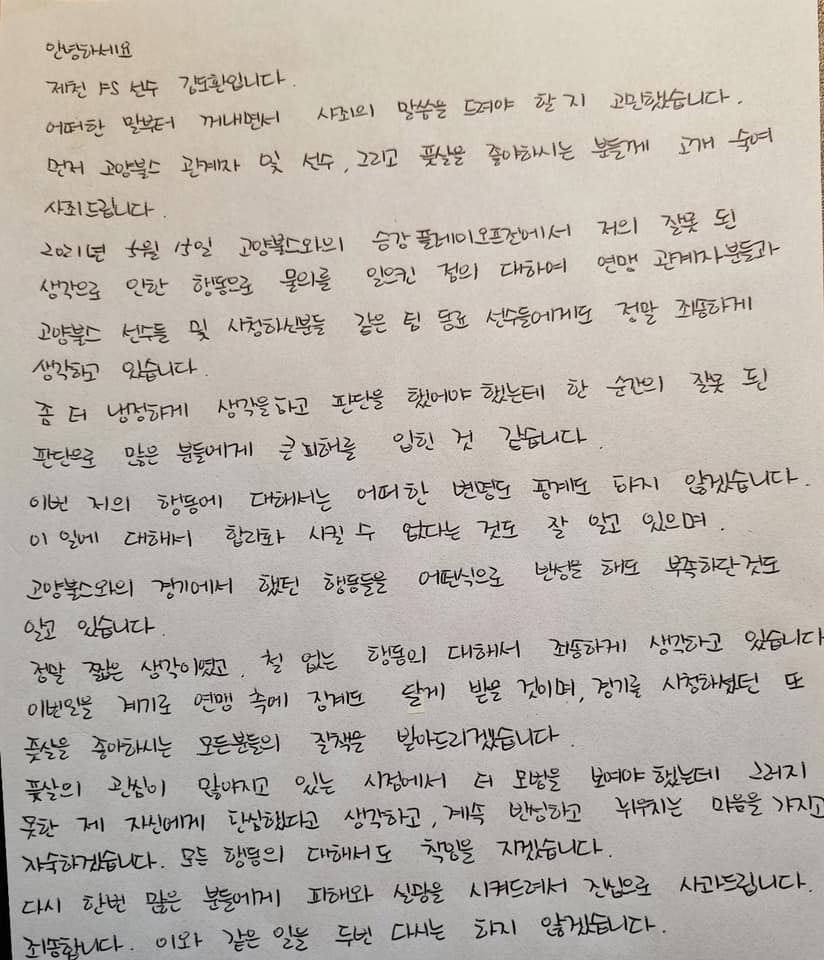 안녕하세요
제천 FS 선수 김도환입니다.
어떠한 말부터 꺼내면서 사죄의 말씀을 드려야 할지 고민했습니다.
먼저 고양불스 관계자 및 선수, 그리고 풋살을 좋아하시는 분들께 고개 숙여
사죄드립니다.
2021년 5월 15일 고양불스와의 승강플레이오프전에서 저의 잘못 된
생각으로 인한 행동으로 물의를 일으킨 점의 대하여 연맹 관계자분들과
고양불스 선수들 및 시청하신분들 같은 팀 동료 선수들에게도 정말 죄송하게
생각하고 있습니다.
좀 더 냉정하게 생각을 하고 판단을 했어야 했는데 한 순간의 잘못 된
판단으로 많은 분들에게 큰 피해를 입힌 것 같습니다.
이번 저의 행동에 대해서는 어떠한 변명도 핑계도 하지 않겠습니다.
이 일에 대해서 합리화 시킬 수 없다는 것도 잘 알고 있으며,
고양불스와의 경기에서 했던 행동들을 어떤식으로 반성을 해도 부족하단것도
알고 있습니다.
정말 짧은 생각이였고, 철 없는 행동의 대해서 죄송하게 생각하고 있습니다
이번일을 계기로 연맹 측에 징계도 달게 받을 것이며, 경기를 시청하셨던 또
풋살을 좋아하시는 모든분들의 질책을 받아드리겠습니다.
풋살의 관심이 많아지고 있는 시점에서 더 모범을 보여야 했는데 그러지
못한 제 자신에게 한심했다고 생각하고, 계속 반성하고 뉘우치는 마음을 가지고
자숙하겠습니다. 모든 행동의 대해서도 책임을 지겠습니다.
다시 한번 많은 분들에게 피해와 실망을 시켜드려서 진심으로 사과드립니다.
죄송합니다. 이와 같은 일을 두번 다시는 하지 않겠습니다.